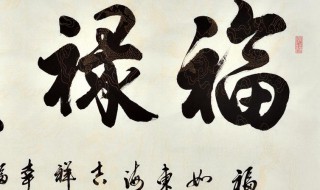 福禄
福如東海吉祥幸福